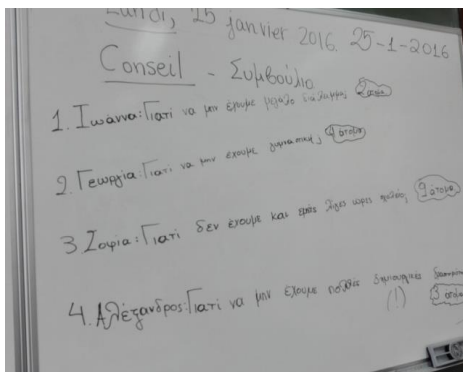 Lundi, 25 janvier 2016. 25-1-2016
Conseil - Συμβούλιο
1. Ιωάννα: Γιατί να μην έχουμε μεγάλο διάλειμμα; 2 άτομα
2. Γεωργία: Γιατί να μην έχουμε γυμναστική; 4 άτομα
3. Σοφία: Γιατί δεν έχουμε και εμείς λίγες ώρες σχολείο; 9 άτομα
4. Αλέξανδρος: Γιατί να μην έχουμε πολλές δημιουργικές
(1) 3 άτομα